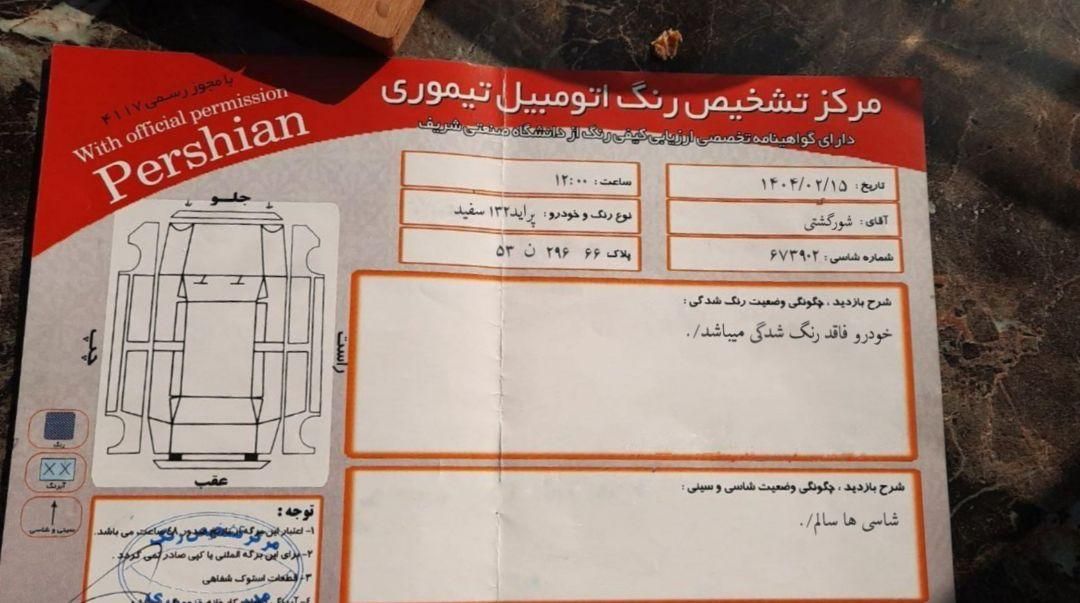 با مجوز رسمی ۴۱۱۷
With official permission
Pershian
مرکز تشخیص رنگ اتومبیل تیموری
دارای گواهینامه تخصصی ارزیابی کیفی رنگ از دانشگاه صنعتی شریف
تاریخ : ۱۴۰۴/۰۲/۱۵
ساعت : ۱۲:۰۰
آقای : شورگشتی
نوع رنگ و خودرو : پراید۱۳۲ سفید
شماره شاسی : ۶۷۳۹۰۲
پلاک ۶۶ ۲۹۶ ن ۵۳
جلو
چپ
راست
عقب
رنگ
XX
آبرنگ
سینی و شاسی
شرح بازدید ، چگونگی وضعیت رنگ شدگی :
خودرو فاقد رنگ شدگی میباشد/.
شرح بازدید ، چگونگی وضعیت شاسی و سینی :
شاسی ها سالم/.
توجه :
۱- اعتبار این برگه از صدور ۴۸ ساعت می باشد.
۲- برای این برگه المثنی یا کپی صادر نمی گردد .
۳- قطعات استوک شفاهی
مرکز تشخیص رنگ